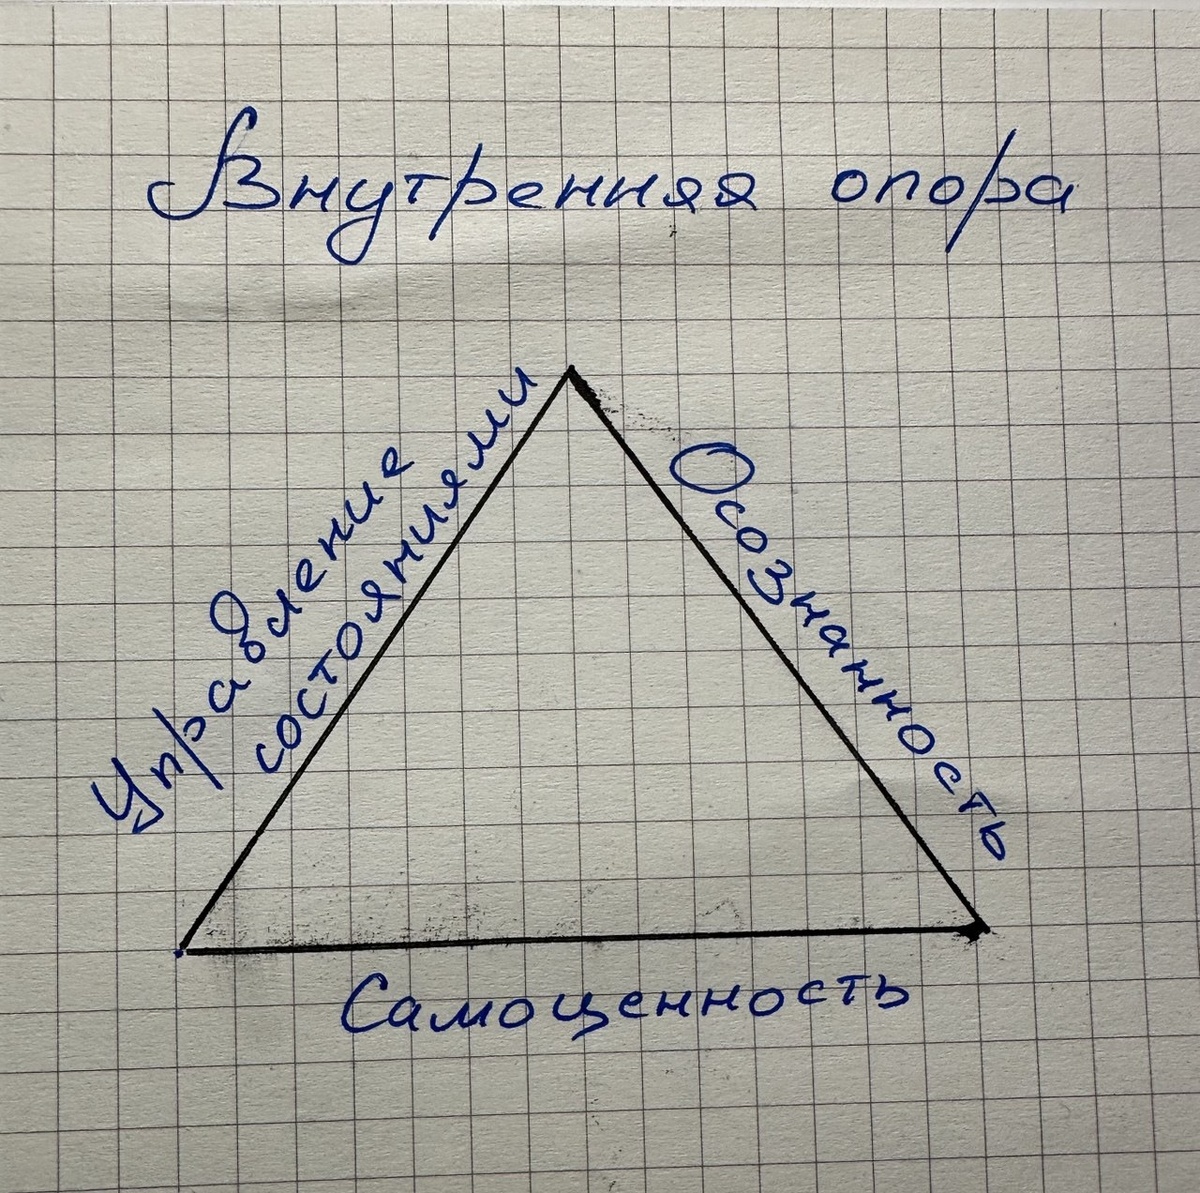 Внутренняя опора
Управление
состояниями
Осознанность
Самоценность